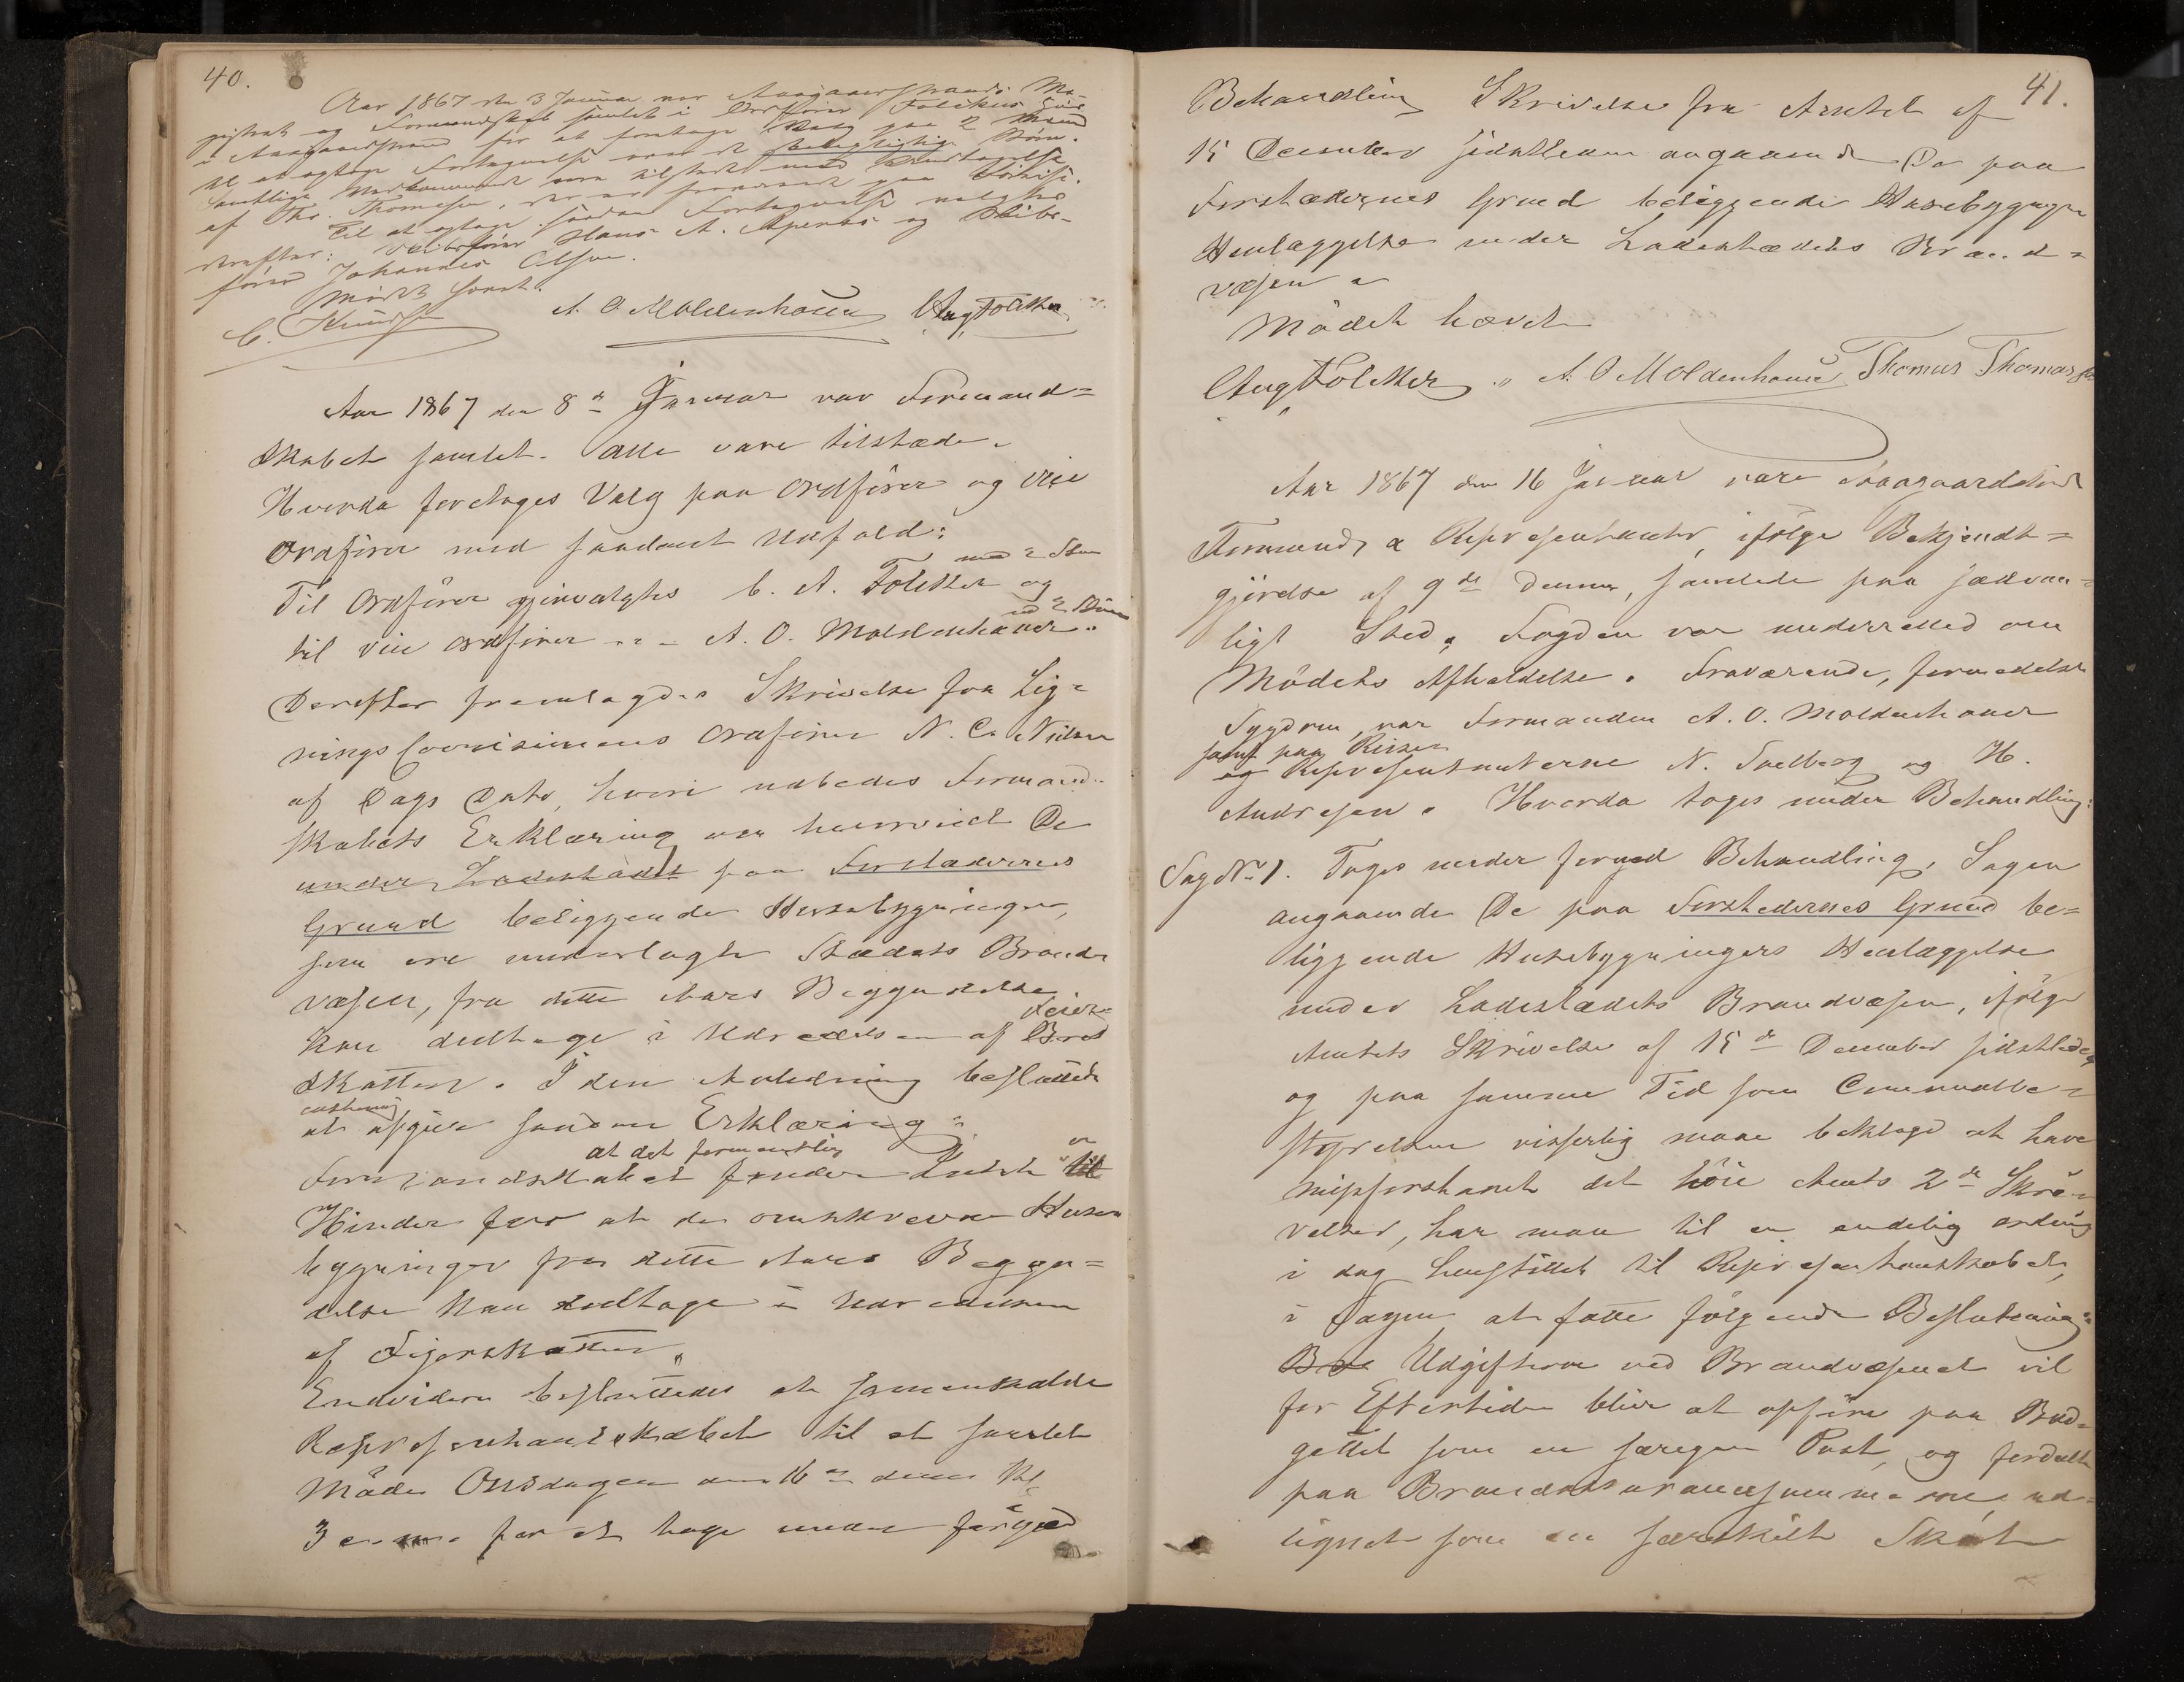 40.
Aar 1867 den 3 Januar var Aasgaardstrands Ma-
gistrat og Formandskab samlet i Ordförer Foleker's Huus
i Aasgaardstrand for at foretage Valg paa 2 Mænd
til at optage Fortegnelse over de skolepligtige Börn.
samtlige Vedkommende vare tilstede med Undtagelse
af Ths. Thomesen, der var fraværende paa Reise.
Til at optage saadan Fortegnelse valgtes
derefter: Skibsförer Hans A. Apenes og Skibs-
förer Johannes Olsen.
Mödet hævet.
C. Knudsen A. O Moldenhauer Aug Foleker
Aar 1867 den 8de Januar var Formand=
skabet samlet. Alle vare tilstæde.
Hvorda foretoges Valg paa Ordförer og vice
Ordförer med saadant Udfald:
med 2 Stem
Til Ordförer gjenvalgtes C. A. Foleker og
med 2 Stemmer
til vice Ordförer - - - A. O. Moldenhauer.
Derefter fremlagdes Skrivelse fra Lig=
nings Commisionens Ordförer N. C. Nielsen
af Dags Dato, hvori udbedes Formand-
skabets Erklæring om hvorvidt De
under Ladestædet paa Forstædernes
Grund beliggende Huusebygninger,
som ere underlagte Stædets Brand-
væsen, fra dette Aars Begyndelse
Feier
kan deeltage i Udredelsen af Brad
skatten. I den Anledning besluttede
enstemig
at afgive saadan Erklæring:
at det formentlig er
Formandskabet finder Intet til
Hinder for at de omskrevne Huse
bygninger fra dette Aars Begyn=
delse kan deeltage i Udredelsen
af Fejerskatten.
Endvidere besluttedes at sammenkalde
Repræsentantskabet til et samlet
Möde Onsdagen den 16de dennes Kl
3 e. m. for at tage under föiged
41.
Behandling Skrivelse fra Amtet af
15 December sidstleden angaaende De paa
Forstædernes Grund beliggende Husebygnges
Henlæggelse under Ladestædets Brand=
væsen.
Mödet hævet
Aug Foleker A. O Moldenhauer Thomas Thomasen
Aar 1867 den 16 Januar vare Aasgaardstrands
Formænd & Repræsentanter, ifölge Bekjendt=
gjörelse af 9de Dennes, samlede paa sædvan=
ligt Sted. Fogden var underretted om
Mödets Afholdelse. Fraværende, formedelst
Sygdom, var Formanden A. O. Moldenhauer
samt paa Reiser
og Repræsentanterne N. Sælberg og H.
Andresen. Hvorda toges under Behandling:
Sag No 1. Toges under fornyed Behandling, Sagen
angaaende De paa Forstedernes Grund be=
liggende Husebygningers Henlæggelse
under Ladestædets Brandvæsen, ifölge
Amtets Skrivelse af 15de December sidstleden,
og paa samme Tid som Communalbe=
styrelsen visserlig maae beklage at have
misforstaaet det höie Amts 2de Skri=
velser, har man til en endelig ordning
i dag henstillet til Repræsentantskabet,
i Sagen at fatte fölgende Beslutning:
Bra Udgifterne ved Brandvæsenet vil
for Eftertiden blive at opföre paa Bud-
gettet som en særegen Post, og fordeelt
paa Brandassurancesummerne ud=
lignet som en særskilt Skat